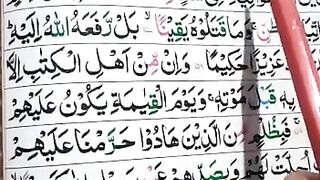 الظَّنِّ ۚ وَمَا قَتَلُوْهُ يَقِيْنًا ۙ بَلْ رَّفَعَهُ اللّٰهُ اِلَيْهِ ؕ
عَزِيْزًا حَكِيْمًا وَاِنْ مِّنْ اَهْلِ الْكِتٰبِ اِلَّا
بِهٖ قَبْلَ مَوْتِهٖ ۚ وَيَوْمَ الْقِيٰمَةِ يَكُوْنُ عَلَيْهِمْ
فَبِظُلْمٍ مِّنَ الَّذِيْنَ هَادُوْا حَرَّمْنَا عَلَيْهِمْ
اُحِلَّتْ لَهُمْ وَبِصَدِّهِمْ عَنْ